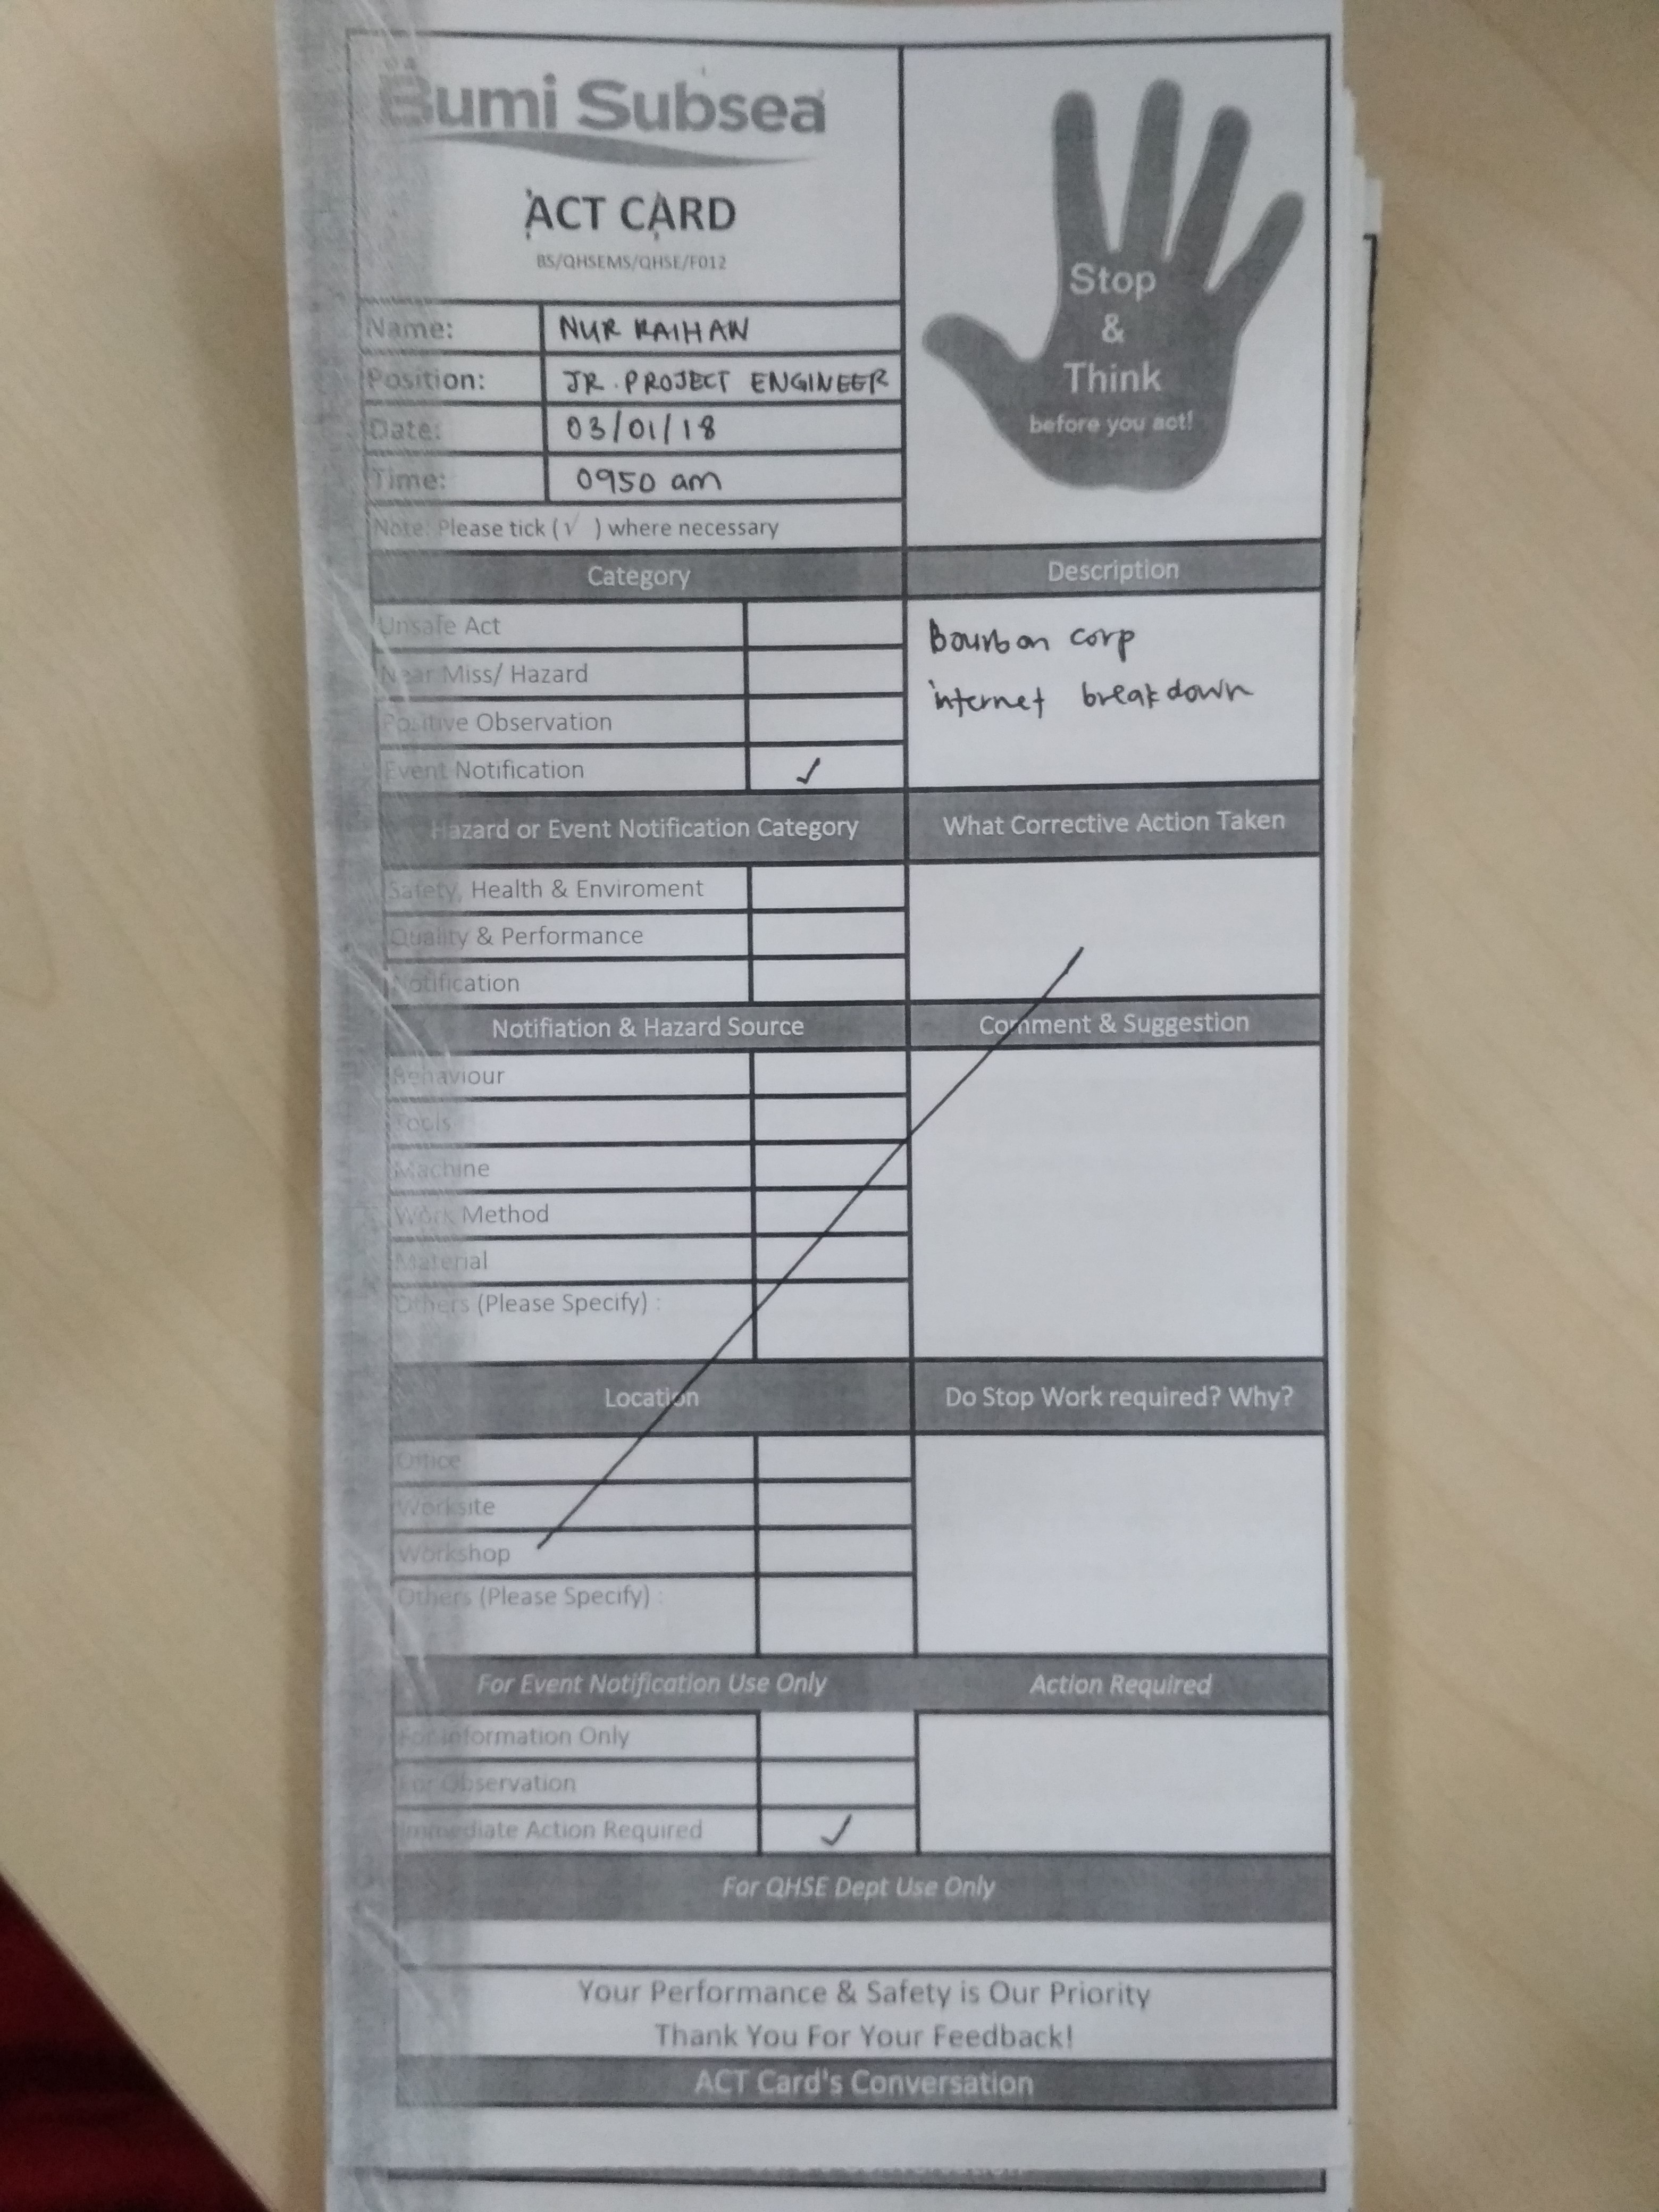 Bumi Subsea
ACT CARD
BS/QHSEMS/QHSE/F012
Stop
&
Think
before you act!
Name: NUR RAIHAN
Position: JR. PROJECT ENGINEER
Date: 03/01/18
Time: 0950 am
Note: Please tick (√ ) where necessary
Category
Unsafe Act
Near Miss/ Hazard
Positive Observation
Event Notification ✓
Description
Bourbon corp
internet breakdown
Hazard or Event Notification Category
Safety, Health & Enviroment
Quality & Performance
Notification
What Corrective Action Taken
Notifiation & Hazard Source
Behaviour
Tools
Machine
Work Method
Material
Others (Please Specify) :
Comment & Suggestion
Location
Office
Worksite
Workshop
Others (Please Specify) :
Do Stop Work required? Why?
For Event Notification Use Only
For Information Only
For Observation
Immediate Action Required ✓
Action Required
For QHSE Dept Use Only
Your Performance & Safety is Our Priority
Thank You For Your Feedback!
ACT Card's Conversation